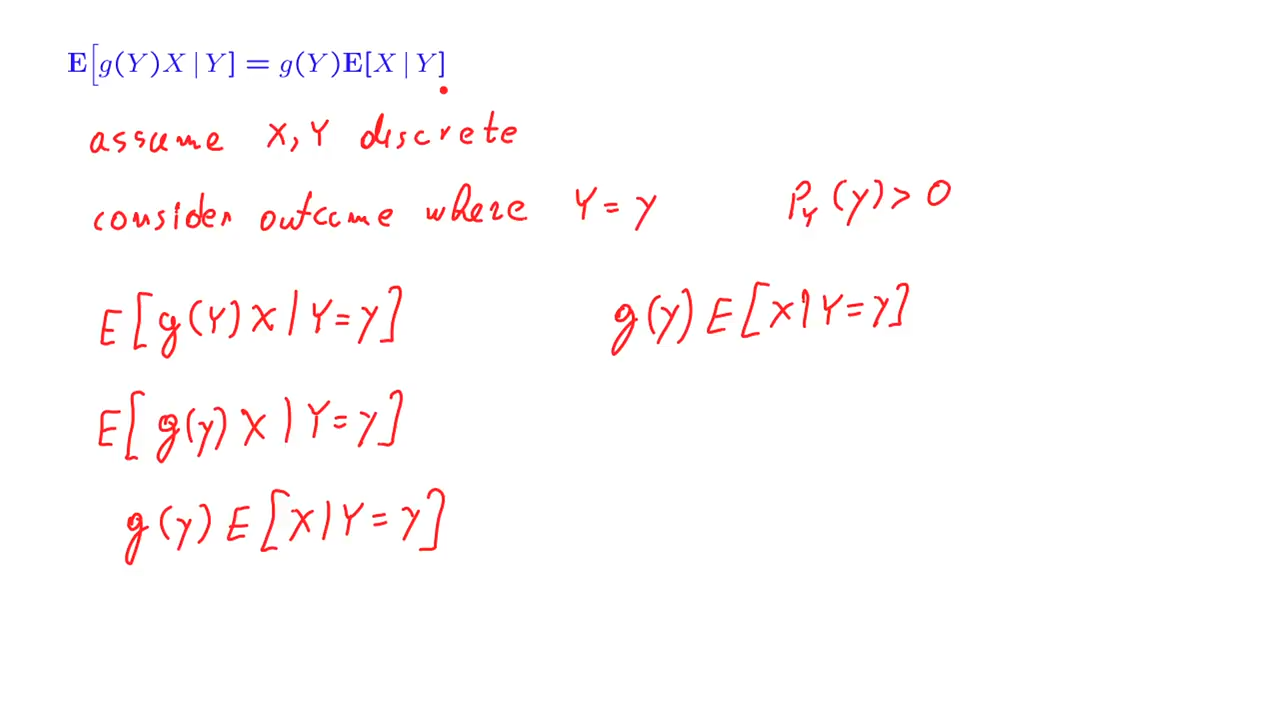 E[g(Y)X | Y] = g(Y)E[X | Y]
assume X, Y discrete
consider outcome where Y = y P_Y(y) > 0
E[g(Y) X | Y = y] g(y) E[X | Y = y]
E[g(y) X | Y = y]
g(y) E[X | Y = y]